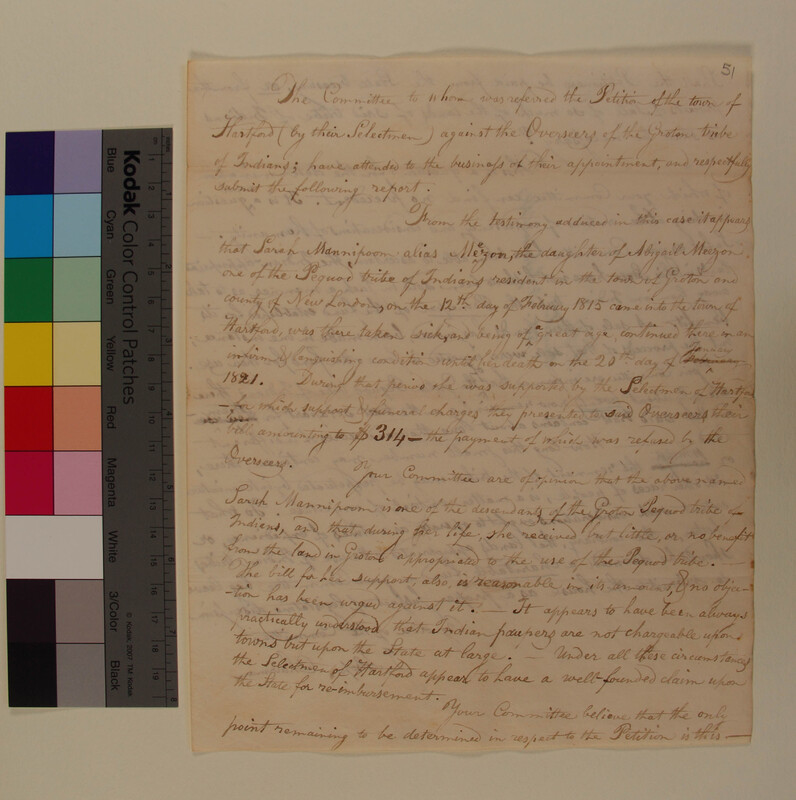 51
The Committee to whom was referred the Petition of the town of
Hartford (by their Selectmen) against the Overseers of the Groton tribe
of Indians; have attended to the business of their appointment, and respectfully
submit the following report.
From the testimony adduced in this case it appears
that Sarah Mannipoom alias Mezon, the daughter of Abigail Meazon
one of the Pequod tribe of Indians resident in the town of Groton and
county of New London, on the 12th day of February 1815 came into the town of
Hartford, was there taken sick, and being of a great age continued there in an
infirm & languishing condition until her death on the 20th day of
1821. During that period she was supported by the Selectmen of Hartford
for which support & funeral charges they presented to said Overseers their
bill amounting to $ 314 — the payment of which was refused by the
Overseers. Your Committee are of opinion that the above named
Sarah Mannipoom is one of the descendants of the Groton Pequod tribe of
Indians, and that during her life, she received but little, or no benefit
from the land in Groton appropriated to the use of the Pequod tribe. —
The bill for her support, also, is reasonable in its amount, & no objec-
-tion has been urged against it. — It appears to have been always
practically understood that Indian paupers are not chargeable upon
towns but upon the State at large. — Under all these circumstances
the Selectmen of Hartford appear to have a well-founded claim upon
the State for re-imbursement.
Your Committee believe that the only
point remaining to be determined in respect to the Petition is this —
Kodak Color Control Patches
Blue
Cyan
Green
Yellow
Red
Magenta
White
3/Color
Black
© Kodak, 2007 TM: Kodak